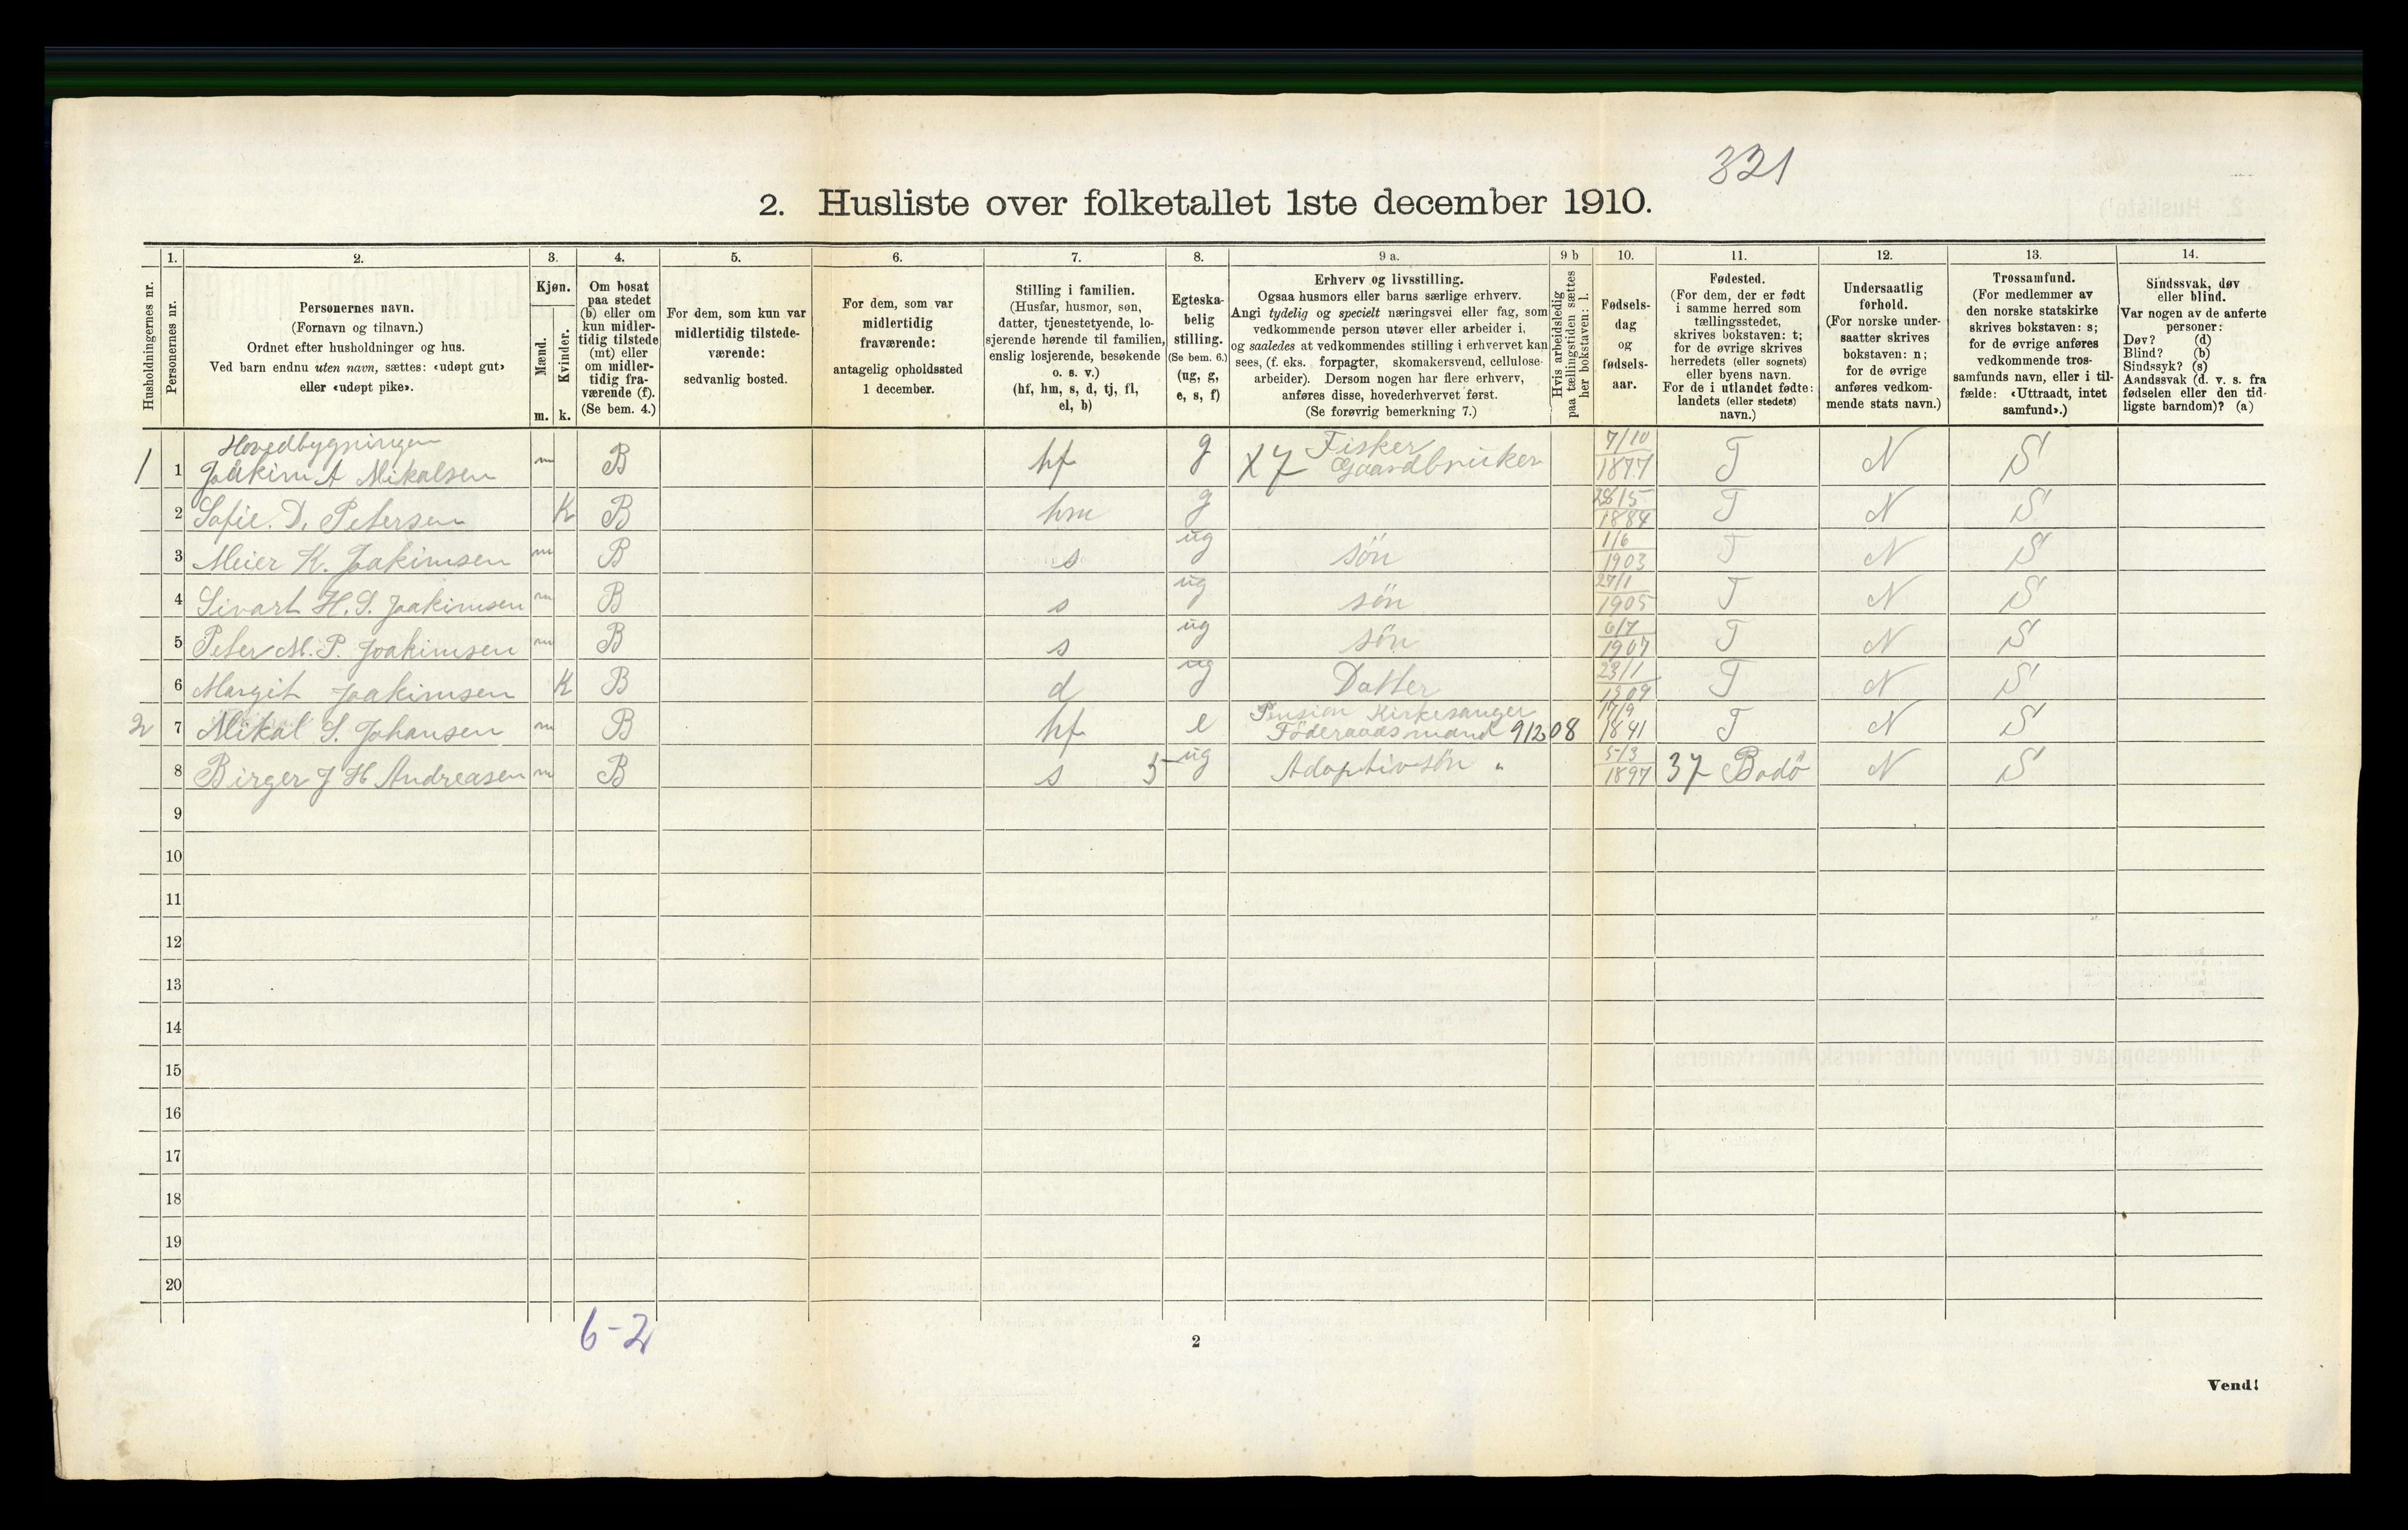 321
2. Husliste over folketallet 1ste december 1910.
Husholdningernes nr.
1.
Personernes nr.
2.
Personernes navn.
(Fornavn og tilnavn.)
Ordnet efter husholdninger og hus.
Ved barn endnu uten navn, sættes: «udøpt gut»
eller «udøpt pike».
3.
Kjøn.
Mænd.
m.
Kvinder.
k.
4.
Om bosat
paa stedet
(b) eller om
kun midler-
tidig tilstede
(mt) eller
om midler-
tidig fra-
værende (f).
(Se bem. 4.)
5.
For dem, som kun var
midlertidig tilstede-
værende:
sedvanlig bosted.
6.
For dem, som var
midlertidig
fraværende:
antagelig opholdssted
1 december.
7.
Stilling i familien.
(Husfar, husmor, søn,
datter, tjenestetyende, lo-
sjerende hørende til familien,
enslig losjerende, besøkende
o. s. v.)
(hf, hm, s, d, tj, fl,
el, b)
8.
Egteska-
belig
stilling.
(Se bem. 6.)
(ug, g,
e, s, f)
9 a.
Erhverv og livsstilling.
Ogsaa husmors eller barns særlige erhverv.
Angi tydelig og specielt næringsvei eller fag, som
vedkommende person utøver eller arbeider i,
og saaledes at vedkommendes stilling i erhvervet kan
sees, (f. eks. forpagter, skomakersvend, cellulose-
arbeider). Dersom nogen har flere erhverv,
anføres disse, hovederhvervet først.
(Se forøvrig bemerkning 7.)
9 b
Hvis arbeidsledig
paa tællingstiden sættes
her bokstaven: l.
10.
Fødsels-
dag
og
fødsels-
aar.
11.
Fødested.
(For dem, der er født
i samme herred som
tællingsstedet,
skrives bokstaven: t;
for de øvrige skrives
herredets (eller sognets)
eller byens navn.
For de i utlandet fødte:
landets (eller stedets)
navn.)
12.
Undersaatlig
forhold.
(For norske under-
saatter skrives
bokstaven: n;
for de øvrige
anføres vedkom-
mende stats navn.)
13.
Trossamfund.
(For medlemmer av
den norske statskirke
skrives bokstaven: s;
for de øvrige anføres
vedkommende tros-
samfunds navn, eller i til-
fælde: «Uttraadt, intet
samfund».)
14.
Sindssvak, døv
eller blind.
Var nogen av de anførte
personer:
Døv? (d)
Blind? (b)
Sindssyk? (s)
Aandssvak (d. v. s. fra
fødselen eller den tid-
ligste barndom)? (a)
Hovedbygningen
1 1 Joakim A Mikalsen m B hf g X7 Fisker Gaardbruker 7/10 1877 T N S
2 Sofie. D. Petersen K B hm g 28/5 1884 T N S
3 Meier K. Joakimsen m B s ug sön 1/6 1903 T N S
4 Sivart H. S. Joakimsen m B s ug sön 27/1 1905 T N S
5 Peter M. P. Joakimsen m B s ug sön 6/7 1907 T N S
6 Margit Joakimsen K B d ug Datter 23/1 1909 T N S
2 7 Mikal S. Johansen m B hf e Pension Kirkesanger Föderaadsmand 91208 17/9 1841 T N S
8 Birger J H Andreasen m B s 5 ug Adoptivsön " 5/3 1897 37 Bodö N S
9
10
11
12
13
14
15
16
17
18
19
20
6-2
2
Vend!